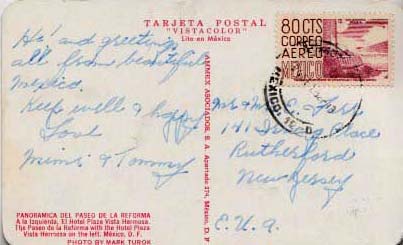 TARJETA POSTAL
"VISTACOLOR"
Lito en México
Hi! and greetings
all from beautiful
Mexico.
Keep well & happy
Love
Mimi & Tommy
PANORAMICA DEL PASEO DE LA REFORMA
A la Izquierda, El Hotel Plaza Vista Hermosa.
The Paseo de la Reforma with the Hotel Plaza
Vista Hermosa on the left. México, D. F.
PHOTO BY MARK TUROK
AMMEX ASOCIADOS, S. A. Apartado 274, México, D. F.
80 CTS
CORREO
AEREO
MEXICO
MEXICO
Mr & Mrs C.
141 Irving Place
Rutherford
New Jersey
E.U.A.